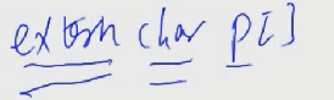 extern char p[]